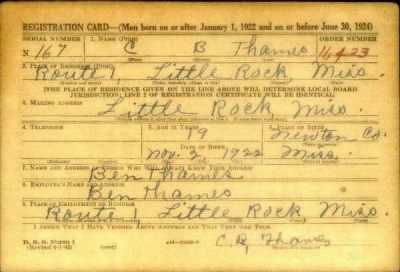 REGISTRATION CARD—(Men born on or after January 1, 1922 and on or before June 30, 1924)
SERIAL NUMBER 1. NAME (Print) ORDER NUMBER
N 167 C B Thames 16423
2. PLACE OF RESIDENCE (Print)
Route 1, Little Rock Miss.
[THE PLACE OF RESIDENCE GIVEN ON THE LINE ABOVE WILL DETERMINE LOCAL BOARD
JURISDICTION; LINE 2 OF REGISTRATION CERTIFICATE WILL BE IDENTICAL]
3. MAILING ADDRESS
Little Rock Miss.
4. TELEPHONE 5. AGE IN YEARS 6. PLACE OF BIRTH
19 Newton Co.
DATE OF BIRTH
Nov. 2 1922 Miss.
7. NAME AND ADDRESS OF PERSON WHO WILL ALWAYS KNOW YOUR ADDRESS
Ben Thames
8. EMPLOYER'S NAME AND ADDRESS
Ben Thames
9. PLACE OF EMPLOYMENT OR BUSINESS
Route 1 Little Rock Miss.
I AFFIRM THAT I HAVE VERIFIED ABOVE ANSWERS AND THAT THEY ARE TRUE.
D. S. S. Form 1
C. B. Thames